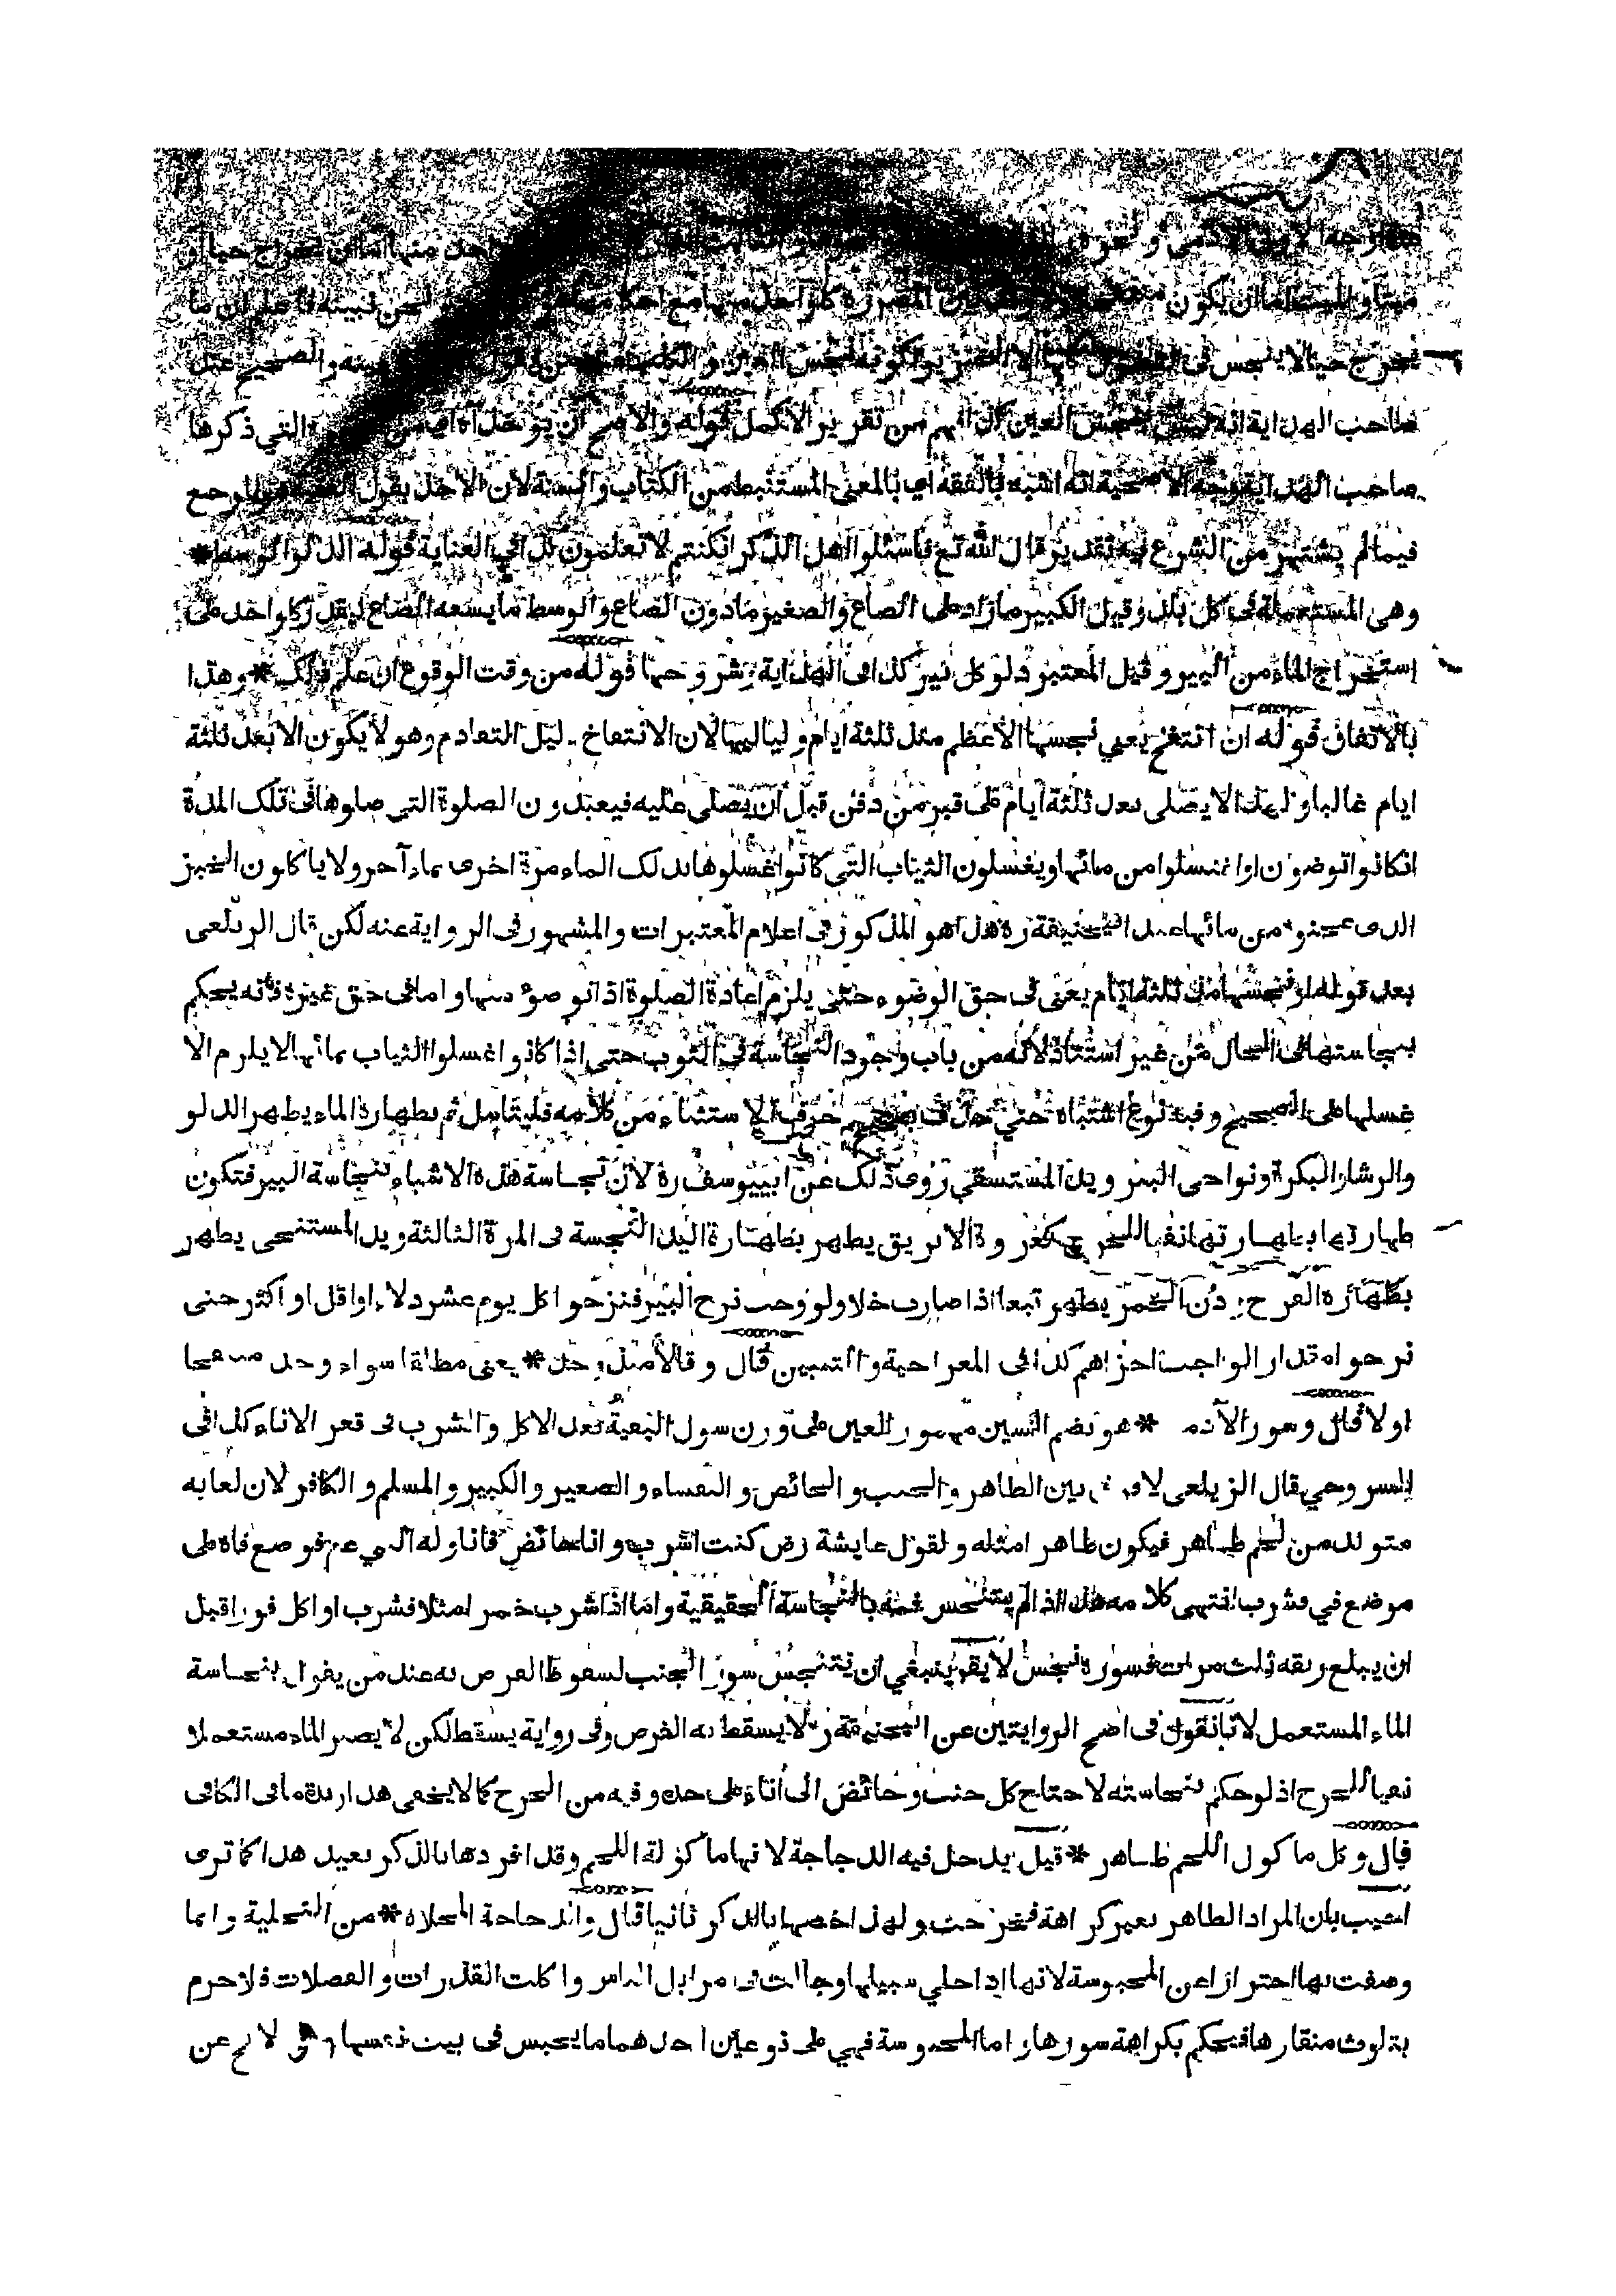 احد منها اما ان يخرج حيا او
ميتا والميت اما ان يكون
يخرج حيا لا ينجس في والصحيح عند
صاحب الهداية انه ليس بنجس العين كذا فهم من تقرير الاكمل قوله والاصح ان يؤخذ التي ذكرها
صاحب الهداية انه اشبه بالفقه اي بالمعنى المستنبط من الكتاب والسنة لان الاخذ بقول المرجع
فيما لم يشتهر من الشرع فيه تقدير قال الله تع فاسئلوا اهل الذكر انكنتم لا تعلمون كذا في العناية قوله الدلو الوسط *
وهى المستعملة فى كل بلد وقيل الكبير ما زاد على الصاع والصغير ما دون الصاع والوسط ما يسعه الصاع
استخراج الماء من البير وقيل المعتبر دلو كل بير كذا فى الهداية وشروحها قوله من وقت الوقوع ان علم ذلك * وهذا
بالاتفاق قوله ان انتفخ يعني نجسها الاعظم مثل ثلثة ايام ولياليها لان الانتفاخ دليل التقادم وهو لا يكون الا بعد ثلثة
ايام غالبا ولهذا لا يصلى بعد ثلثة ايام على قبر من دفن قبل ان يصلى عليه فيعيدون الصلوة التي صلوها فى تلك المدة
انكانوا توضون او اغتسلوا من مائها ويغسلون الثياب التي كانوا غسلوها بذلك الماء مرة اخرى بماء آخر ولا ياكلون الخبز
الذى عجنوه من مائها عند ابيحنيقة ره هذا هو المذكور فى اعلام المعتبرات والمشهور فى الرواية عنه لكن قال الزيلعى
بعد قوله لو نجسها منذ ثلثة ايام يعنى فى حق الوضوء حتى يلزم اعادة الصلوة اذا توضوء منها واما فى حق غيره فانه يحكم
بنجاستها فى الحال من غير استناد لانه من باب وجود النجاسة في الثوب حتى اذا كانوا غسلوا الثياب بمائها لا يلزم الا
غسلها على الصحيح وفيه نوع اشتباه حتى حذف بعضهم حرف الاستثناء من كلامه فليتامل ثم بطهارة الماء يطهر الدلو
والرشا والبكرة ونواحى البئر ويد المستسقي روى ذلك عن ابييوسف ره لان نجاسة هذه الاشياء بنجاسة البير فتكون
طهارتها بطهارتها نفيا للحرج كعروة الابريق يطهر بطهارة اليد النجسة فى المرة الثالثة ويد المستنجى يطهر
بطهارة الفرج ودن الخمر يطهر تبعا اذا صارت خلا ولو وجب نزح البير فنزحوا كل يوم عشر دلاء او اقل او اكثر حتى
نزحوا مقدار الواجب اجزاهم كذا فى المعراجية والتبيين قال وقالا منذ وجد * يعنى مطلقا سواء وجد منتفخا
اولا قال وسور الآدمى * هو بضم السين مهموز العين على وزن سول البقية بعد الاكل والشرب فى قعر الاناء كذا فى
السروجي قال الزيلعى لا فرق بين الطاهر والجنب والحائض والنفساء والصغير والكبير والمسلم والكافر لان لعابه
متولد من لحم طاهر فيكون طاهرا مثله ولقول عايشة رض كنت اشرب وانا حائض فاناوله النبي عم فوضع فاه على
موضع في فشرب انتهى كلامه هذا اذا لم يتنجس فمه بالنجاسة الحقيقية واما اذا شرب خمرا مثلا فشرب او اكل فورا قبل
ان يبلع ريقه ثلث مرات فسوره نجس لا يقر ينبغي ان يتنجس سور الجنب لسقوط الفرض به عند من يقول بنجاسة
الماء المستعمل لانا نقول فى اصح الروايتين عن ابيحنيفة ره لا يسقط به الفرض وفى رواية يسقط لكن لا يصير الماء مستعملا
نفيا للحرج اذ لو حكم بنجاسته لاحتاج كل جنب وحائض الى اناء على حده وفيه من الحرج كما لا يخفى هذا زبدة ما فى الكافى
قال وكل ما كول اللحم طاهر * قيل يدخل فيه الدجاجة لانها ماكولة اللحم وقد افردها بالذكر بعيد هذا كما ترى
اجيب بان المراد الطاهر بغير كراهة فخرجت ولهذا خصها بالذكر ثانيا قال والدجاجة المخلاة * من التخلية وانما
وصفت بها احترازا عن المحبوسة لانها اذا خلي سبيلها وجالت فى مزابل الناس واكلت القذرات والفضلات فلا جرم
يتلوث منقارها فيحكم بكراهة سورها واما المحبوسة فهي على نوعين احدهما ما يحبس فى بيت نفسها عن